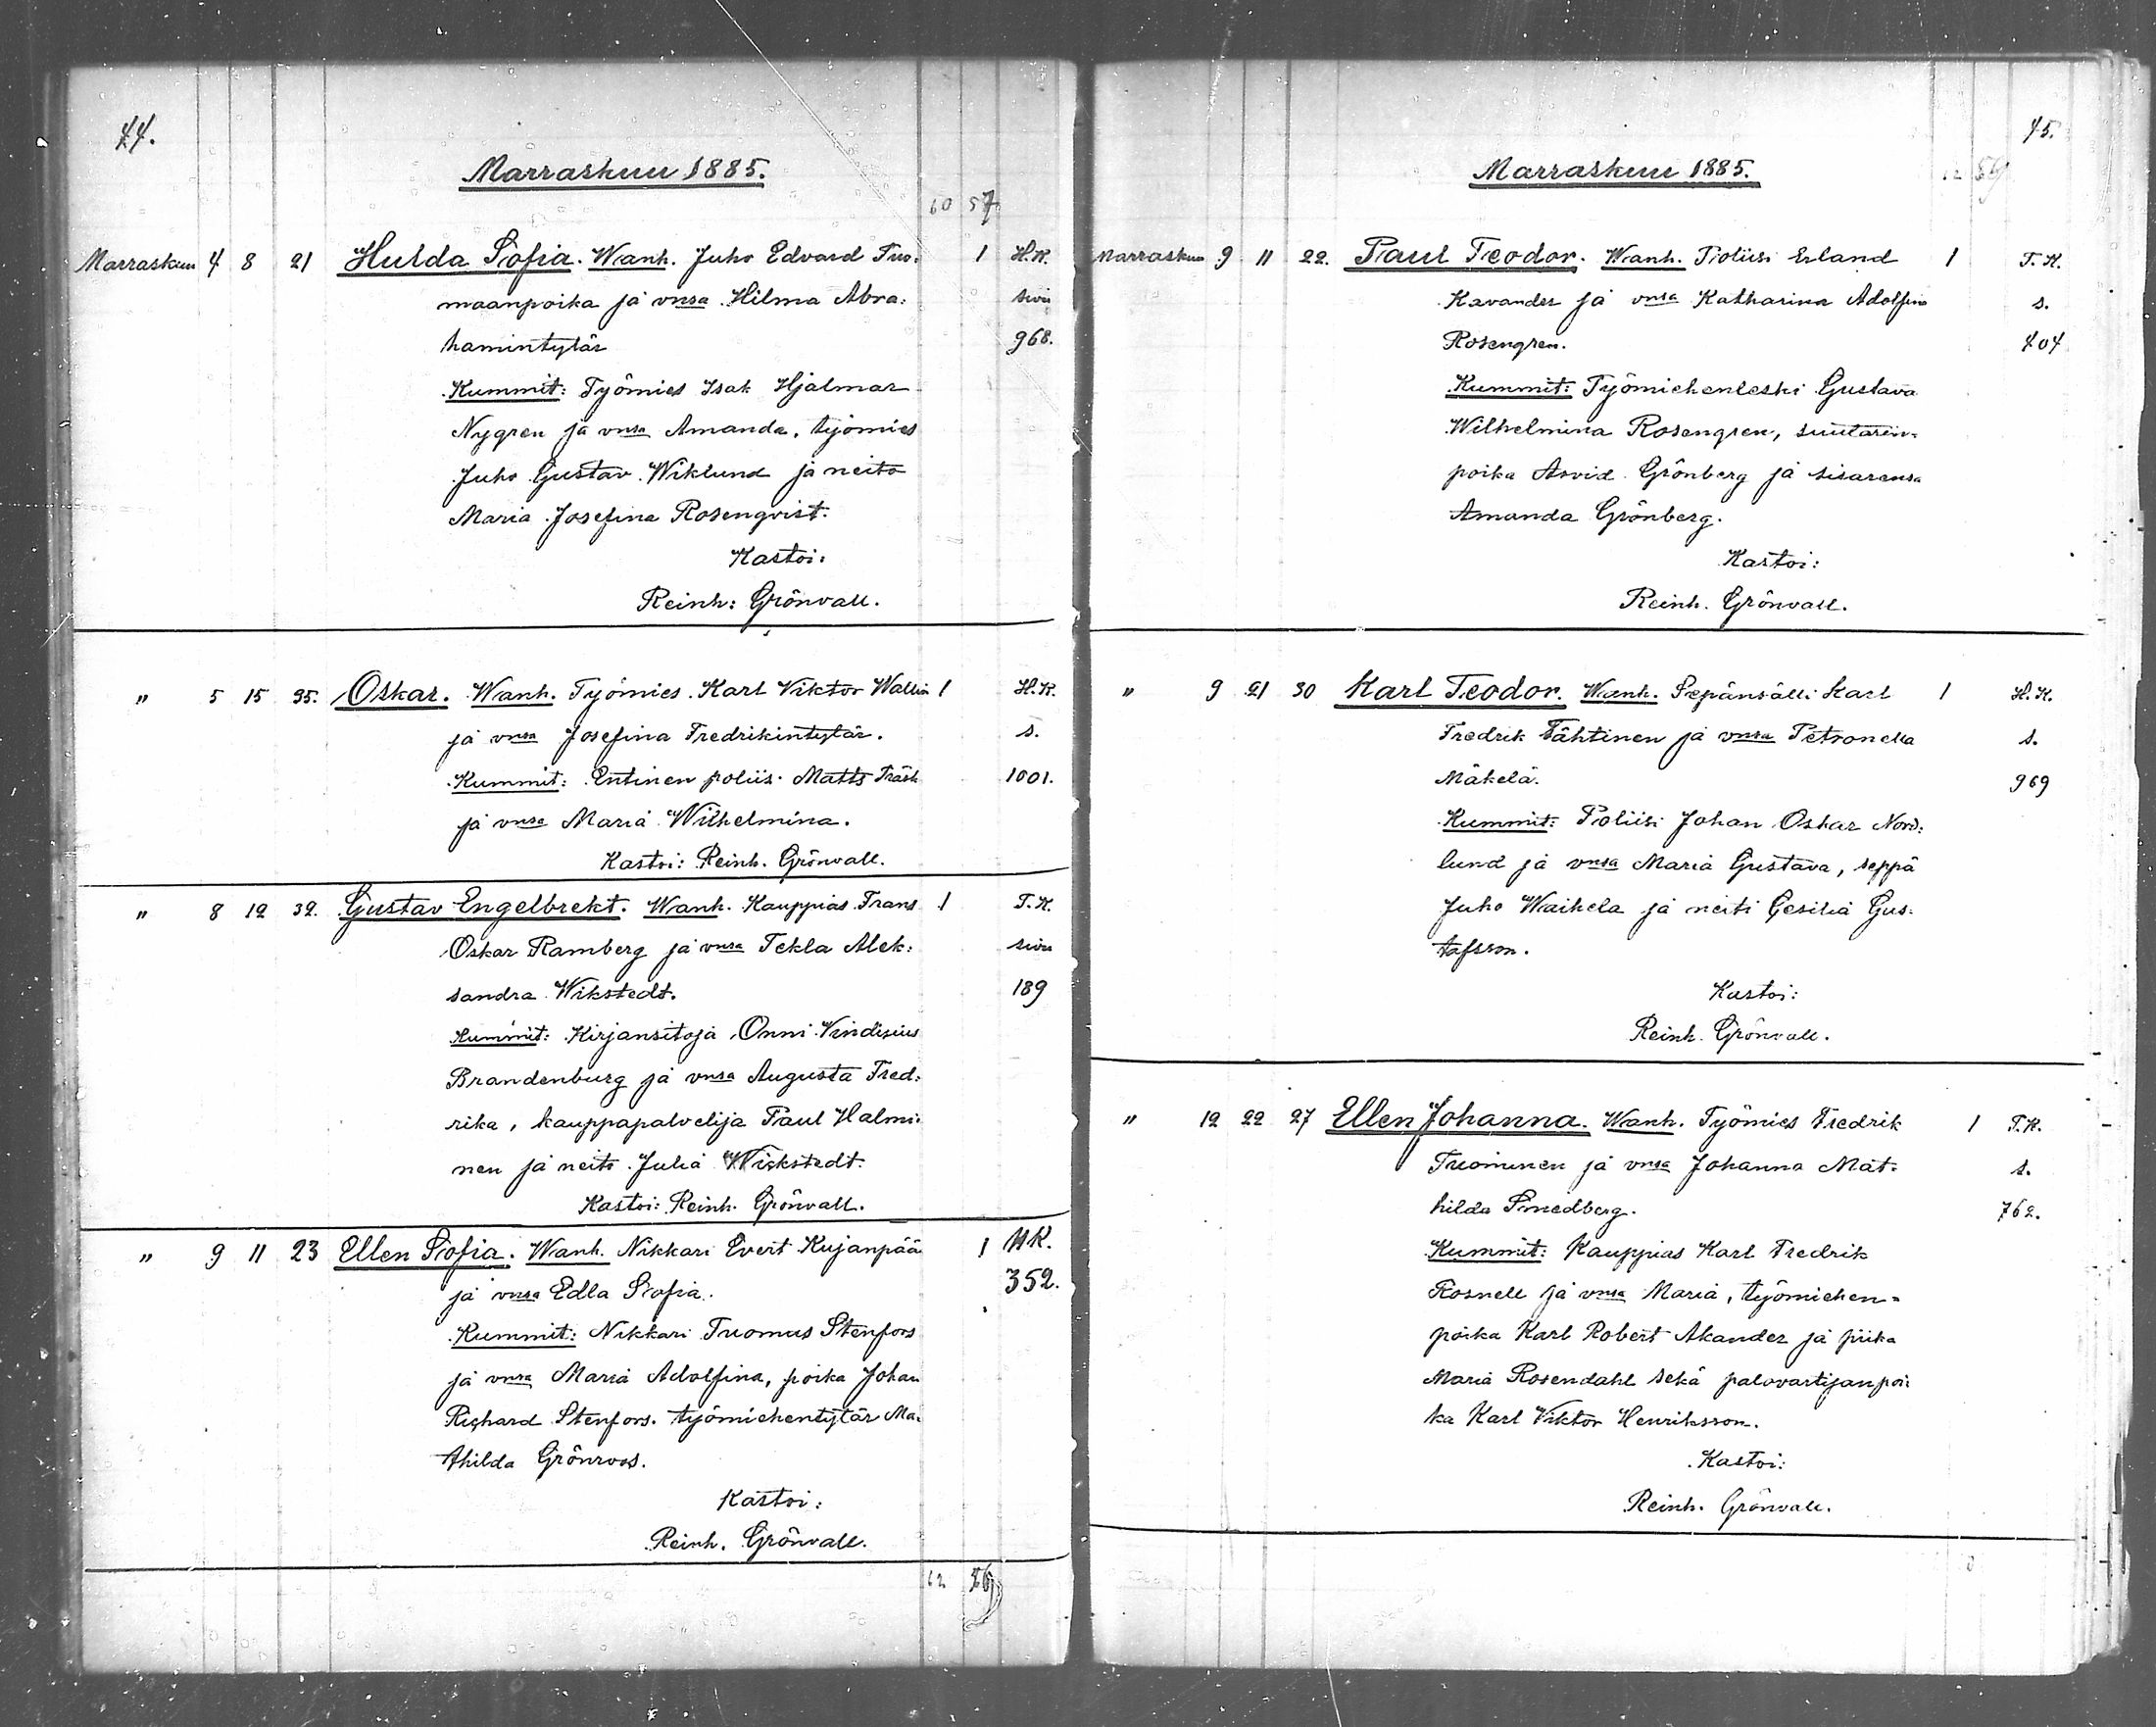 44.
Marraskuu 1885.
60 57
Marraskuu 4 8 21 Hulda Sofia. Wanh. Juho Edvard Tuo- 1 H.K.
maanpoika ja vnsa Hilma Abra- sivu
hamintytär 968.
Kummit: Työmies Isak Hjalmar
Nygren ja vnsa Amanda, työmies
Juho Gustav Wiklund ja neito
Maria Josefina Rosenqvist.
Kastoi:
Reinh: Grönvall.
" 5 15 35. Oskar. Wanh. Työmies Karl Viktor Wallin 1 H.K.
ja vnsa Josefina Fredrikintytär. s.
Kummit: Entinen poliis Matts Träsk 1001.
ja vnsa Maria Wilhelmina.
Kastoi: Reinh. Grönvall.
" 8 12 32. Gustav Engelbrekt. Wanh. Kauppias Frans 1 T.K.
Oskar Ramberg ja vnsa Tekla Alek- sivu
sandra Wikstedt. 189
Kummit: Kirjansitoja Onni Vindisius
Brandenburg ja vnsa Augusta Fred-
rika, kauppapalvelija Paul Halmi-
nen ja neito Julia Wiekstedt.
Kastoi: Reinh. Grönvall.
" 9 11 23 Ellen Sofia. Wanh. Nikkari Evert Kujanpää 1 HK.
ja vnsa Edla Sofia. 352.
Kummit: Nikkari Tuomas Stenfors
ja vnsa Maria Adolfina, poika Johan
Richard Stenfors. työmiehentytär Ma-
thilda Grönroos.
Kastoi:
Reinh. Grönvall.
62
45.
Marraskuu 1885.
59
Marraskuu 9 11 22. Paul Teodor. Wanh. Poliisi Erland 1 T.K.
Kavander ja vnsa Katharina Adolfina s.
Rosengren. 404
Kummit: Työmiehenleski Gustava
Wilhelmina Rosengren, suutarin-
poika Arvid Grönberg ja sisarensa
Amanda Grönberg.
Kastoi:
Reinh. Grönvall.
" 9 21 30 Karl Teodor. Wanh. Sepänsälli Karl 1 H.K.
Fredrik Tähtinen ja vnsa Petronella s.
Mäkelä. 969
Kummit: Poliisi Johan Oskar Nord-
lund ja vnsa Maria Gustava, seppä
Juho Waihela ja neiti Cesilia Gus-
tafsson.
Kastoi:
Reinh. Grönvall.
" 12 22 27 Ellen Johanna. Wanh. Työmies Fredrik 1 T.K.
Tuominen ja vnsa Johanna Mat- s.
hilda Smedberg. 762.
Kummit: Kauppias Karl Fredrik
Rosnell ja vnsa Maria, työmiehen-
poika Karl Robert Akander ja piika
Maria Rosendahl sekä palovartijanpoi-
ka Karl Viktor Henriksson.
Kastoi:
Reinh. Grönvall.